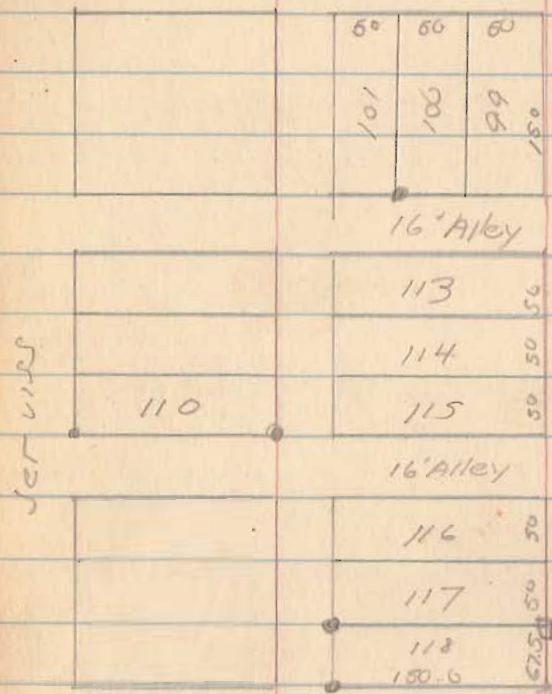 50 50 50
101 100 99 150
16' Alley
113 50
114 50
110 115 50
16' Alley
116 50
117 50
118 67.5
150.0